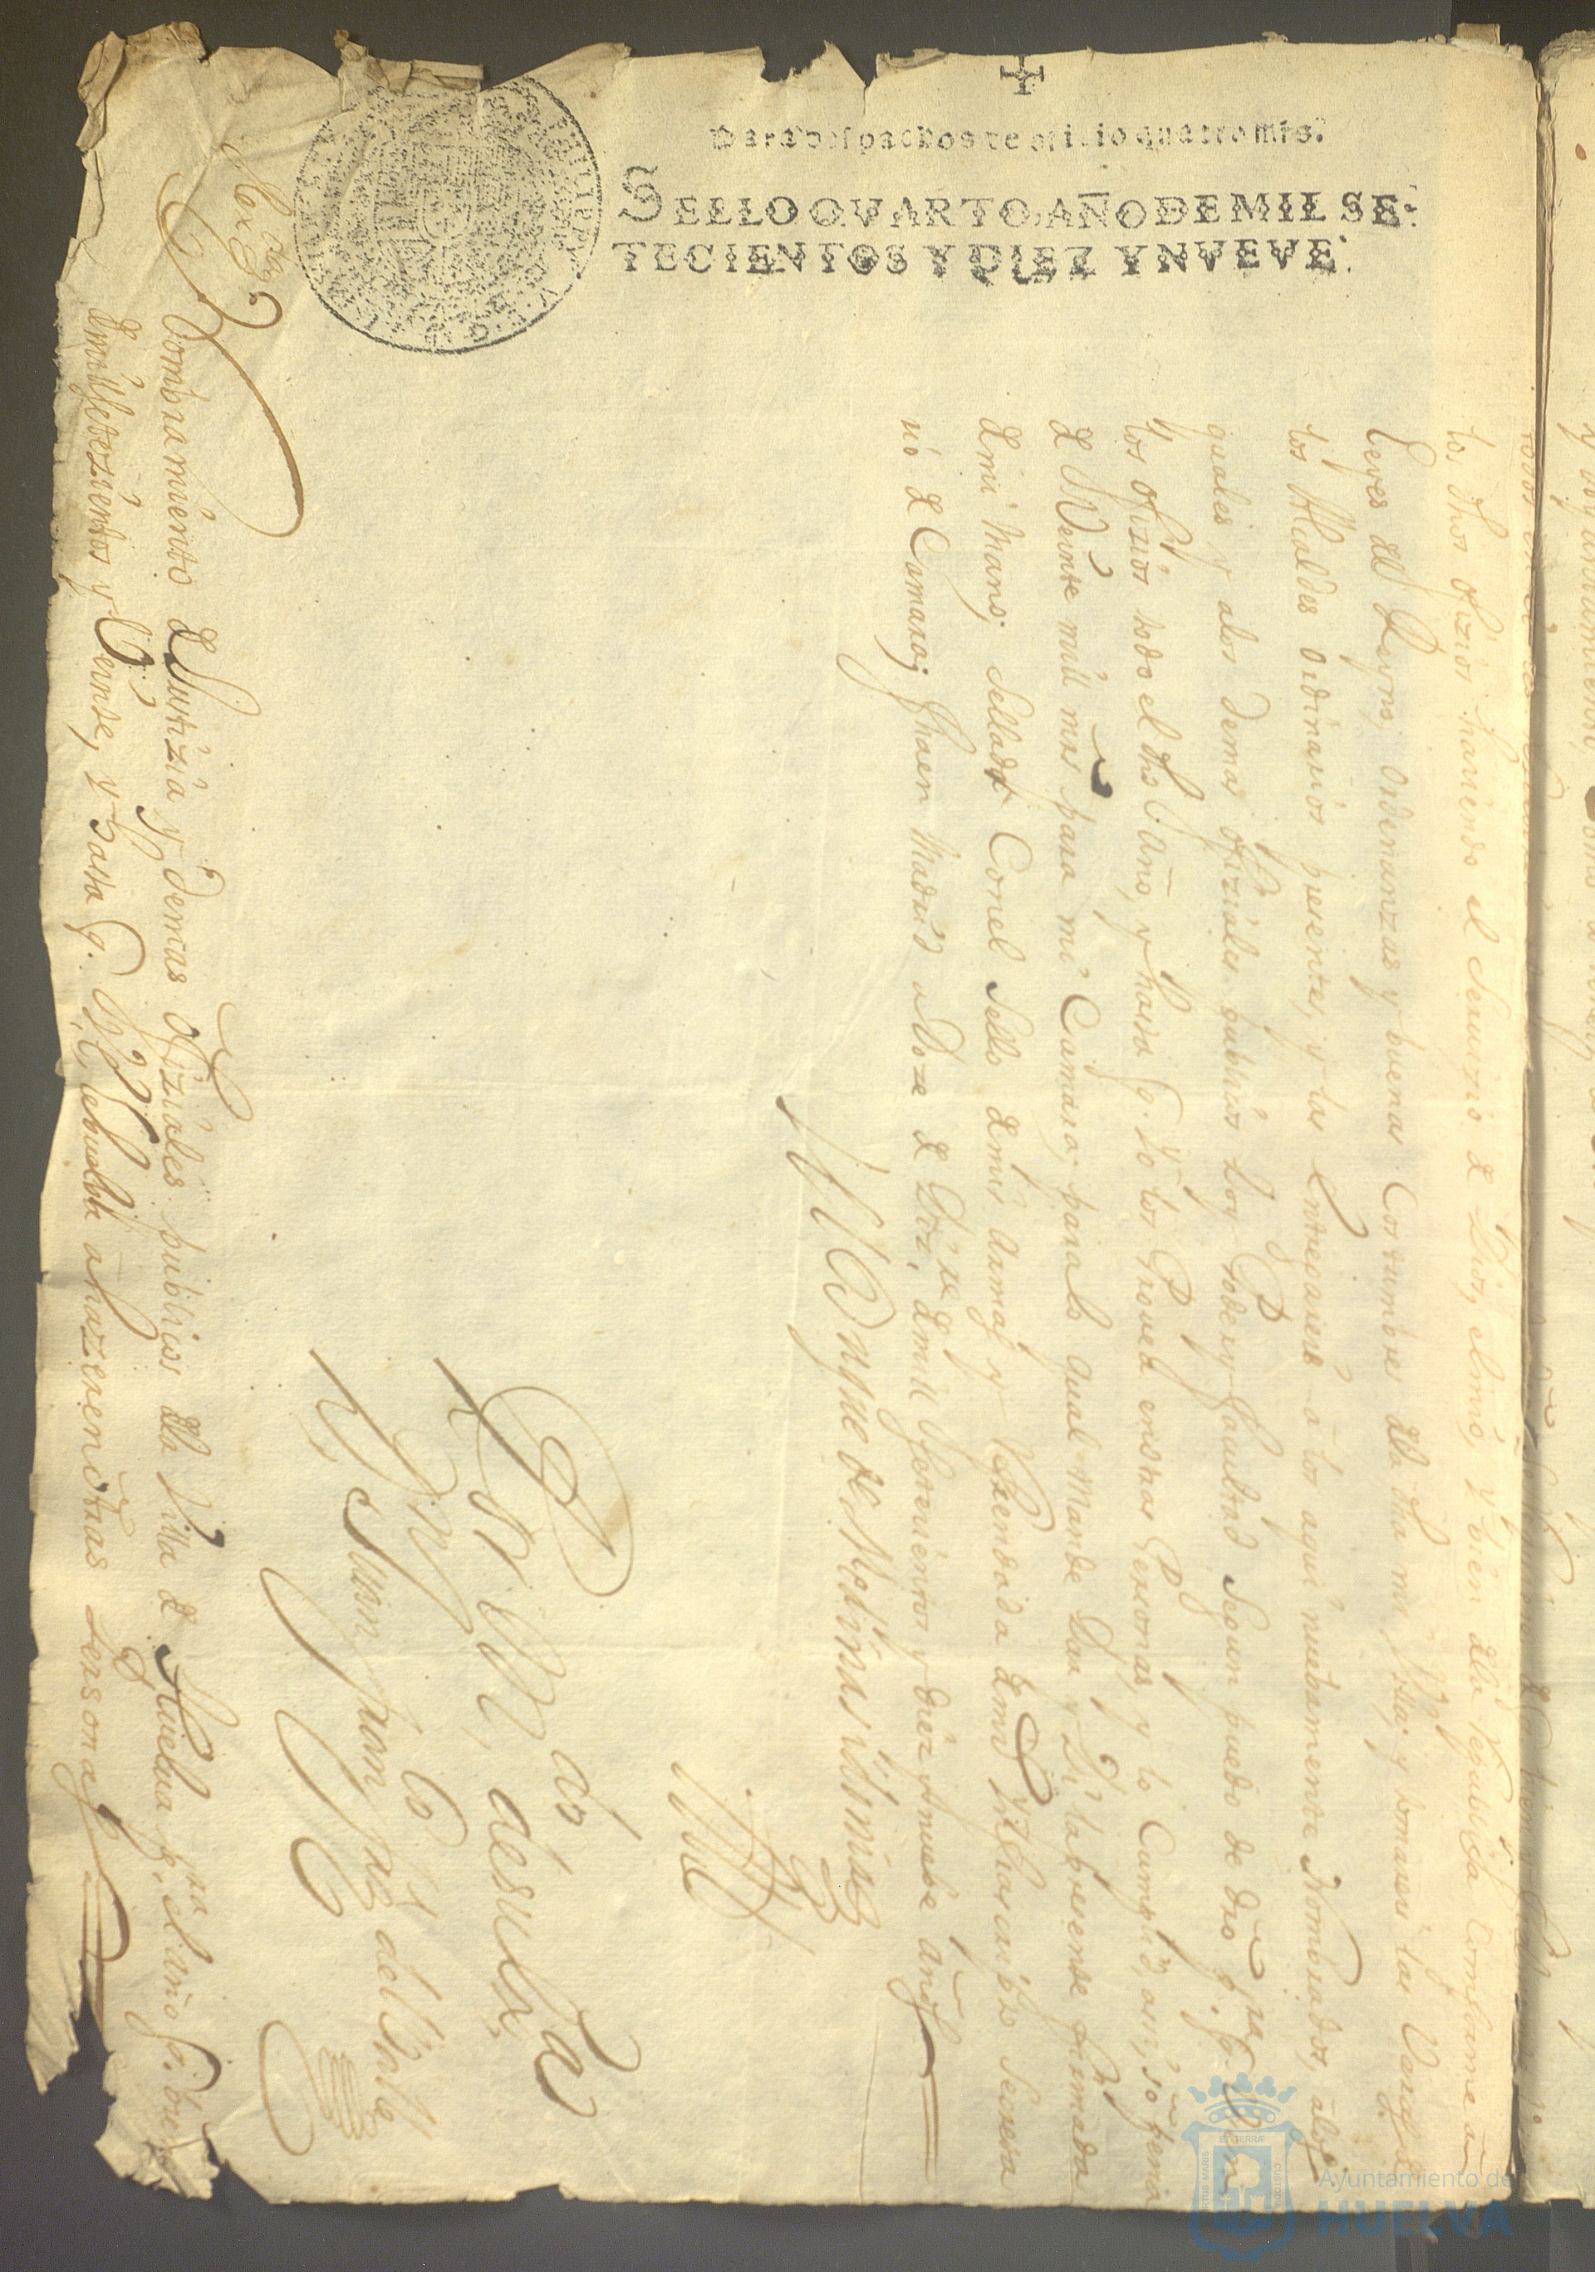 Para despachos de oficio quatro mrs.
SELLO QVARTO, AÑO DE MIL SE-
TECIENTOS Y DIEZ Y NVEVE.
los dhos ofizios haziendo el Seruizio de Dios, el mio, y bien dela republica Conforme a
leyes del Reyno, ordenanzas y buenas Costumbres dela dha mi Villa; y tomareis las Varas de
los Alcaldes ordinarios presentes, y las entregareis a los aqui nuebamente Nombrados, alos
quales y alos demas ofiziales publicos doy Poder y facultad Segun puedo de dro pa. q. Usen
los ofizios todo el dho Año, y hasta q. Yo los Provea en otras Personas, y lo Cumplid, asi, so pena
de Veinte mill mrs para mi Camara; para lo qual Mande Dar y Di la presente firmada
de mi Mano; Sellada Con el Sello de mis Armas y Refrendada de mi Infraescripto Secreta
rio de Camara; fha en Madrid a Doze de Dize. de mill Setecientos y diez y nuebe años
El Duque de Medina Sidonia
Por mdo. del Duque mi Sr.
Dn Juan
del Valle
Nombramiento de Justizia y demas ofiziales publicos dela Villa de Huelua pa. el año q. biene
de mill setezientos y Veinte, y hasta q. V.E. buelba a hazer en otras Personas
Ayuntamiento de
HUELVA